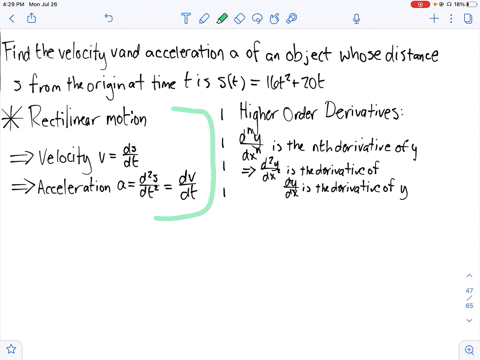 4:29 PM Mon Jul 26
18%
Find the velocity v and acceleration a of an object whose distance
s from the origin at time t is s(t) = 16t²+20t
* Rectilinear motion
⇒ Velocity v = ds/dt
⇒ Acceleration a = d²s/dt² = dv/dt
Higher Order Derivatives:
dⁿy/dxⁿ is the nth derivative of y
⇒ d²y/dx² is the derivative of
dy/dx is the derivative of y
47
/
65